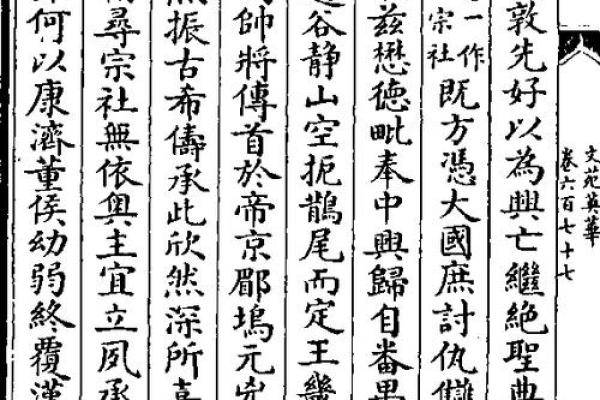 文苑英華
卷六百七十七
敦先好以為興亡繼絶聖典
一作
宗社
既方憑大國庶討仇讎
兹懋德毗奉中興歸自番禺
谷静山空扼鵲尾而定王畿
帥將傳首於帝京郿塢元兇
振古希儔承此欣然深所喜
尋宗社無依奥主宜立夙承
何以康濟董侯幼弱終覆漢